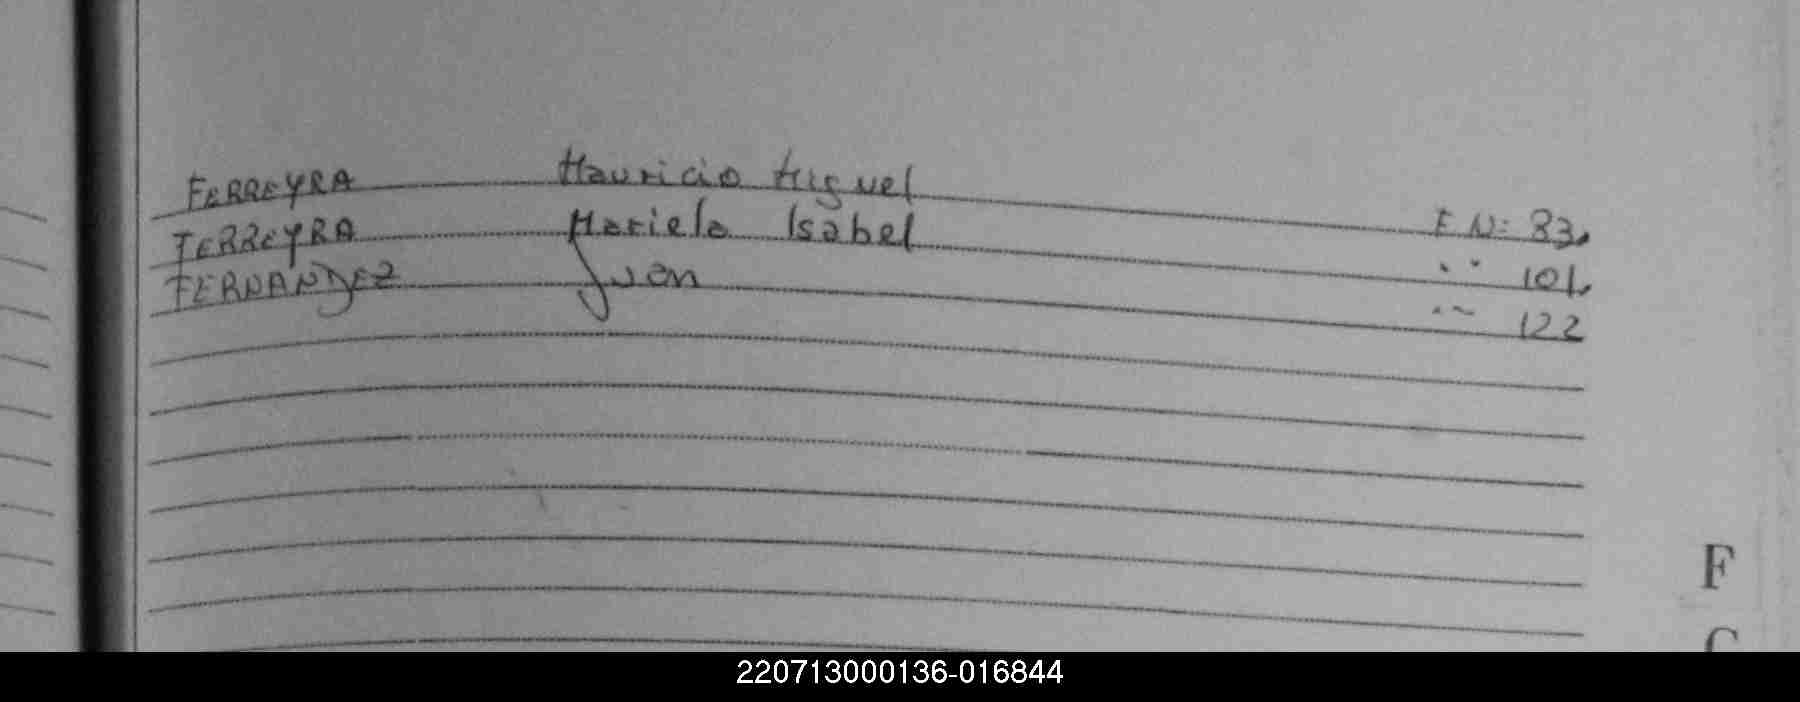 FERREYRA Mauricio Miguel F N: 83.
FERREYRA Mariela Isabel " 101.
FERNANDEZ Juan " 122
F
G
220713000136-016844